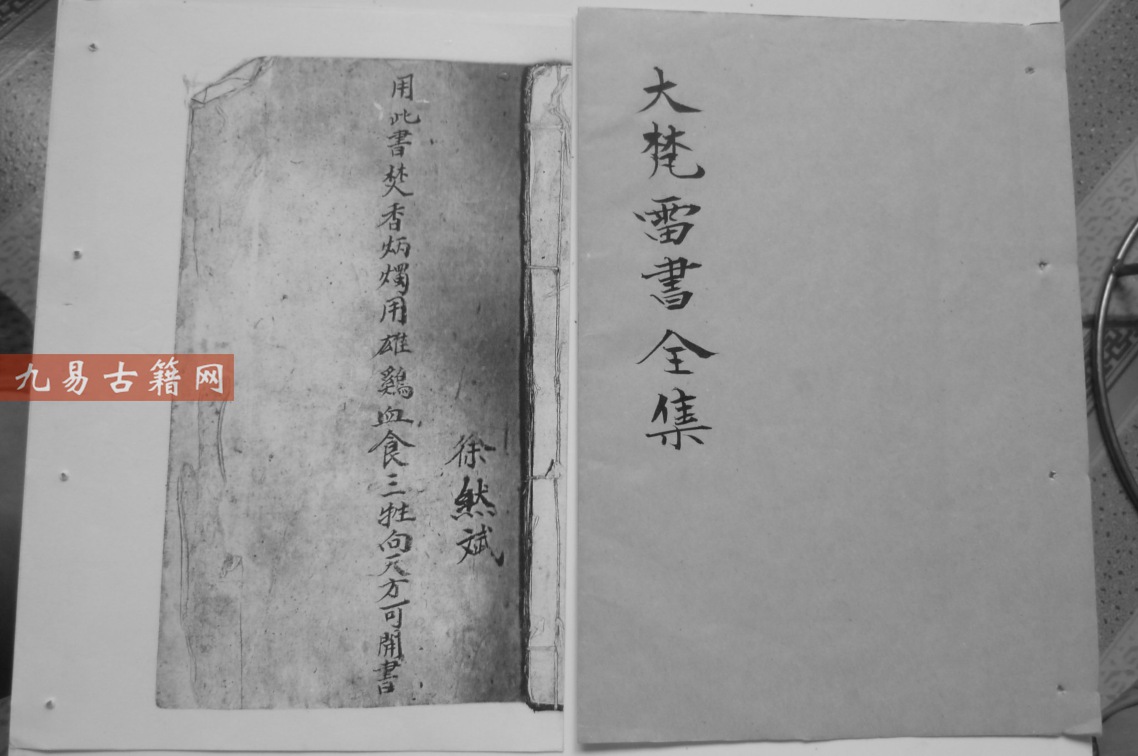 大梵雷書全集
徐然斌
用此書焚香炳燭用雄鷄血食三牲向天方可開書
九易古籍网